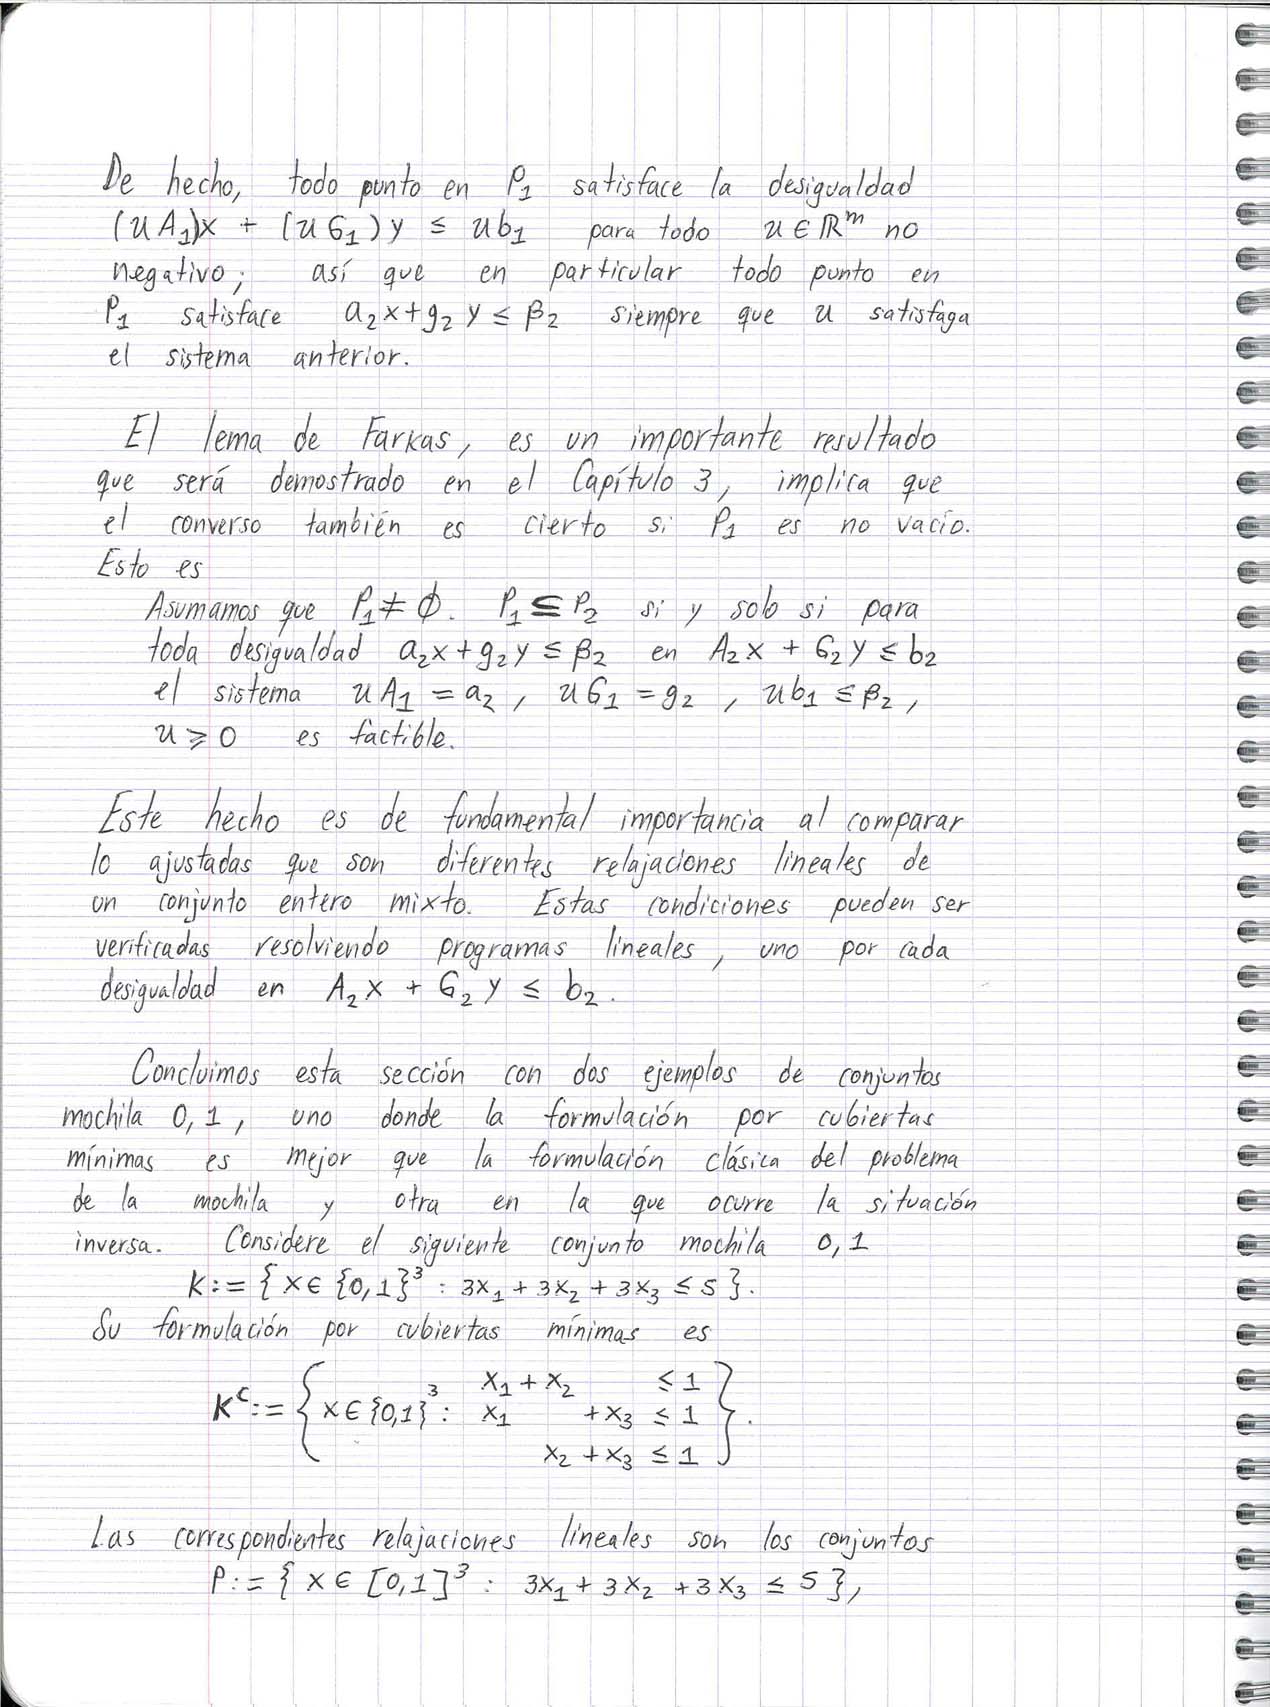 De hecho, todo punto en P₁ satisface la desigualdad
(uA₁)x + (uG₁)y ≤ ub₁ para todo u ∈ ℝᵐ no
negativo; así que en particular todo punto en
P₁ satisface a₂x+g₂y ≤ β₂ siempre que u satisfaga
el sistema anterior.
El lema de Farkas, es un importante resultado
que será demostrado en el Capítulo 3, implica que
el converso también es cierto si P₁ es no vacío.
Esto es
Asumamos que P₁ ≠ ∅. P₁ ⊆ P₂ si y solo si para
toda desigualdad a₂x+g₂y ≤ β₂ en A₂x + G₂y ≤ b₂
el sistema uA₁ = a₂, uG₁ = g₂, ub₁ ≤ β₂,
u ⩾ 0 es factible.
Este hecho es de fundamental importancia al comparar
lo ajustadas que son diferentes relajaciones lineales de
un conjunto entero mixto. Estas condiciones pueden ser
verificadas resolviendo programas lineales, uno por cada
desigualdad en A₂x + G₂y ≤ b₂.
Concluimos esta sección con dos ejemplos de conjuntos
mochila 0,1, uno donde la formulación por cubiertas
mínimas es mejor que la formulación clásica del problema
de la mochila y otra en la que ocurre la situación
inversa. Considere el siguiente conjunto mochila 0,1
K := {x ∈ {0,1}³ : 3x₁ + 3x₂ + 3x₃ ≤ 5}.
Su formulación por cubiertas mínimas es
x₁ + x₂ ≤ 1
Kᶜ := { x ∈ {0,1}³ : x₁ + x₃ ≤ 1 }.
x₂ + x₃ ≤ 1
Las correspondientes relajaciones lineales son los conjuntos
P := {x ∈ [0,1]³ : 3x₁ + 3x₂ + 3x₃ ≤ 5},